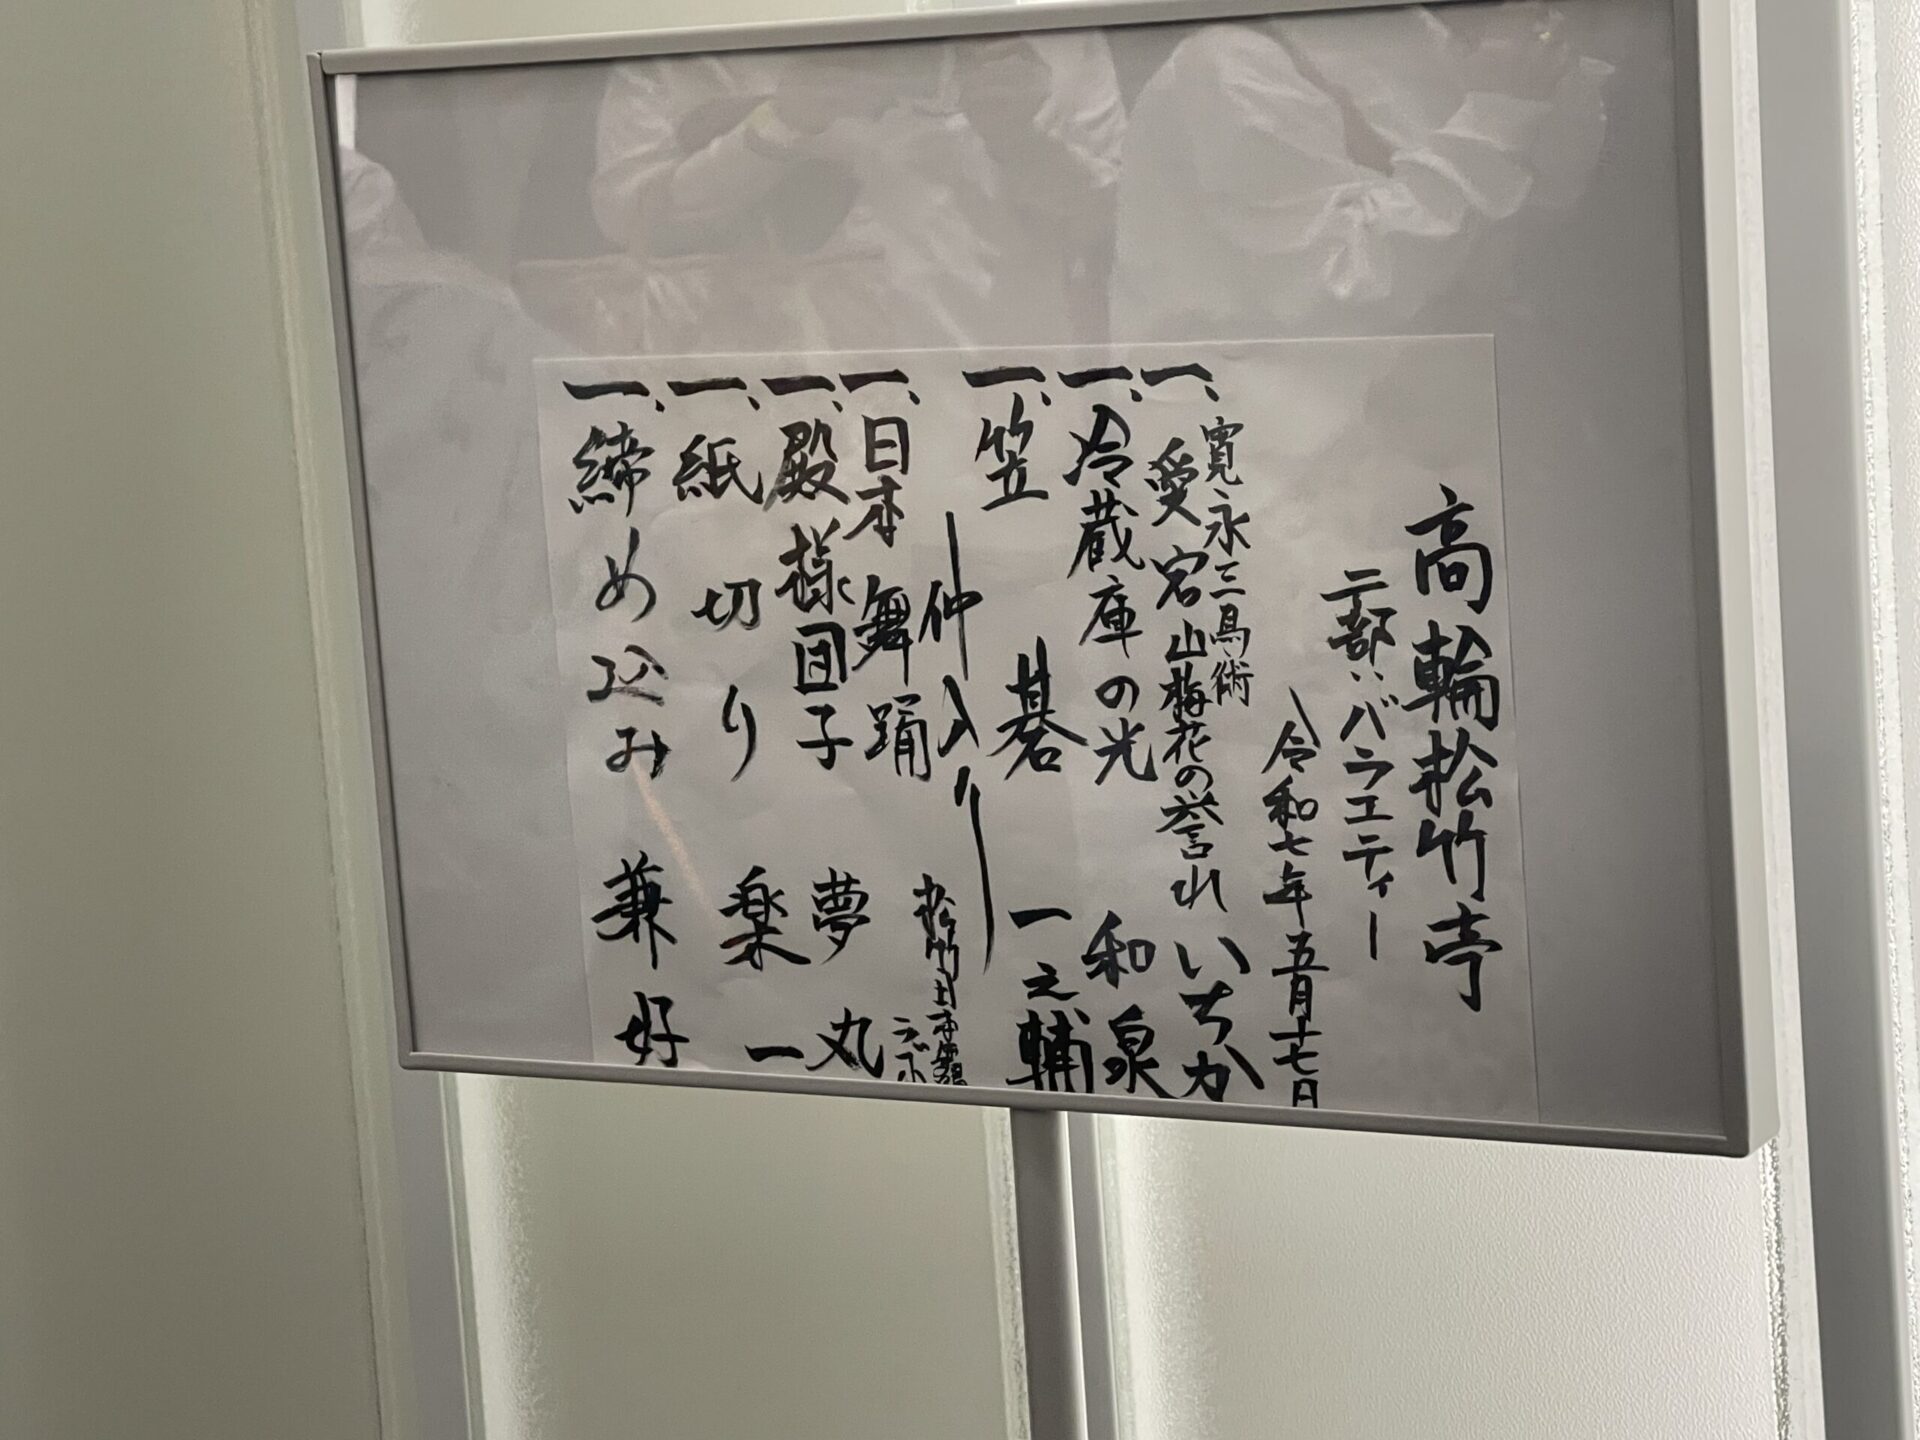 高輪松竹亭
二部:バラエティー
令和七年五月十七日
一、寛永三馬術
愛宕山梅花の誉れ いちか
一、冷蔵庫の光 和泉
一、笠碁 一之輔
仲入り
一、日本舞踊 松竹日本舞踊ラボ
一、殿様団子 夢丸
一、紙切り 楽一
一、締め込み 兼好